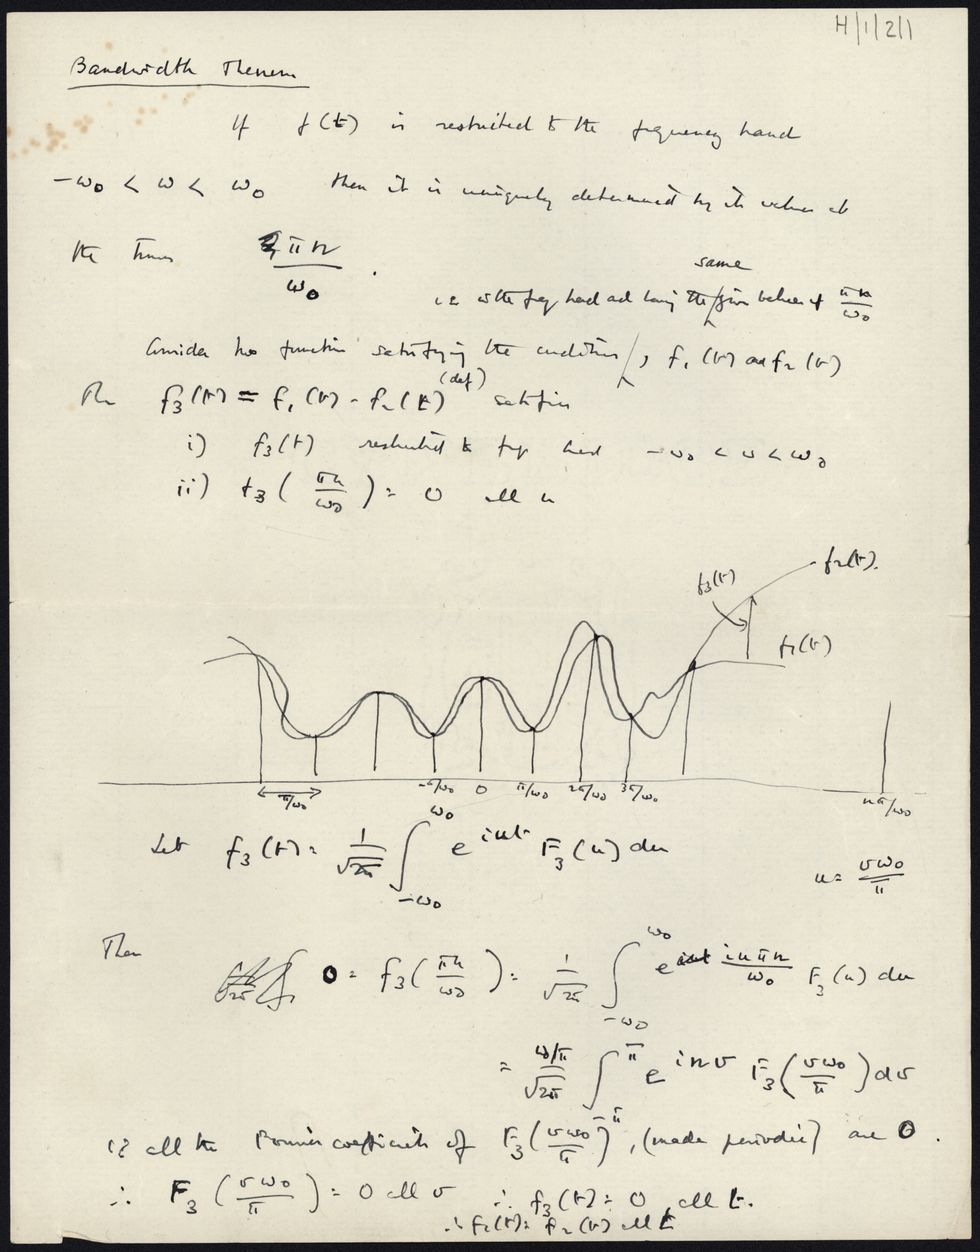 H/1/2/1
Bandwidth Theorem
If f(t) is restricted to the frequency band
-ω₀ < ω < ω₀ then it is uniquely determined by its values at
the times πn/ω₀ .
same
i.e. in the freq band and having the given values at πn/ω₀
Consider two functions satisfying the conditions, f₁(t) and f₂(t)
(def)
Then f₃(t) = f₁(t) - f₂(t) satisfies
i) f₃(t) restricted to freq band -ω₀ < ω < ω₀
ii) f₃(πn/ω₀) = 0 all n
f₃(t) f₂(t).
f₁(t)
π/ω₀ -π/ω₀ 0 π/ω₀ 2π/ω₀ 3π/ω₀ nπ/ω₀
Let f₃(t) = 1/√2π ∫_{-ω₀}^{ω₀} e^{iut} F₃(u) du
u = vω₀/π
Then 0 = f₃(πn/ω₀) = 1/√2π ∫_{-ω₀}^{ω₀} e^{iuπn/ω₀} F₃(u) du
= ω/π/√2π ∫_{-π}^{π} e^{inv} F₃(vω₀/π) dv
i.e. all the Fourier coefficients of F₃(vω₀/π), (made periodic) are 0.
∴ F₃(vω₀/π) = 0 all v ∴ f₃(t) = 0, all t.
∴ f₁(t) = f₂(t) all t